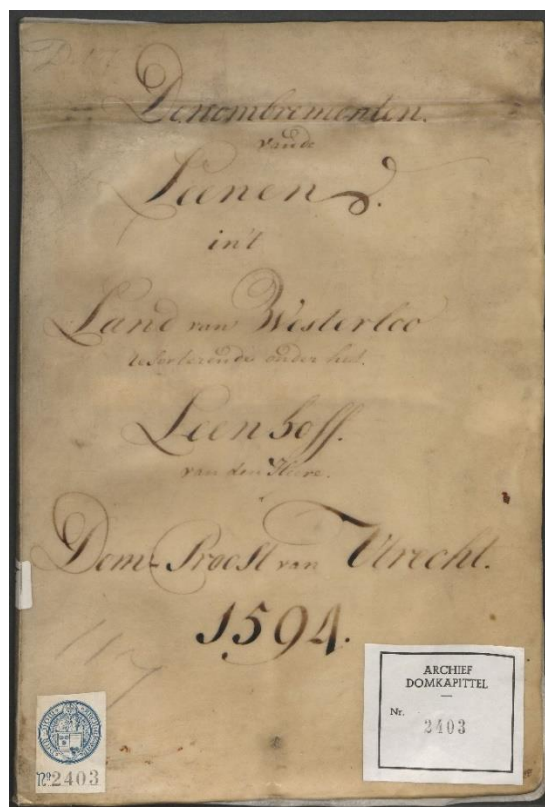 Denombrementen.
vande
Leenen
in't
Land van Westerloo
resorterende onder het.
Leenhoff.
van den Heere.
Dom-Proost van Utrecht.
1594.
117
ARCHIEF
DOMKAPITTEL
Nr. 2403
No 2403